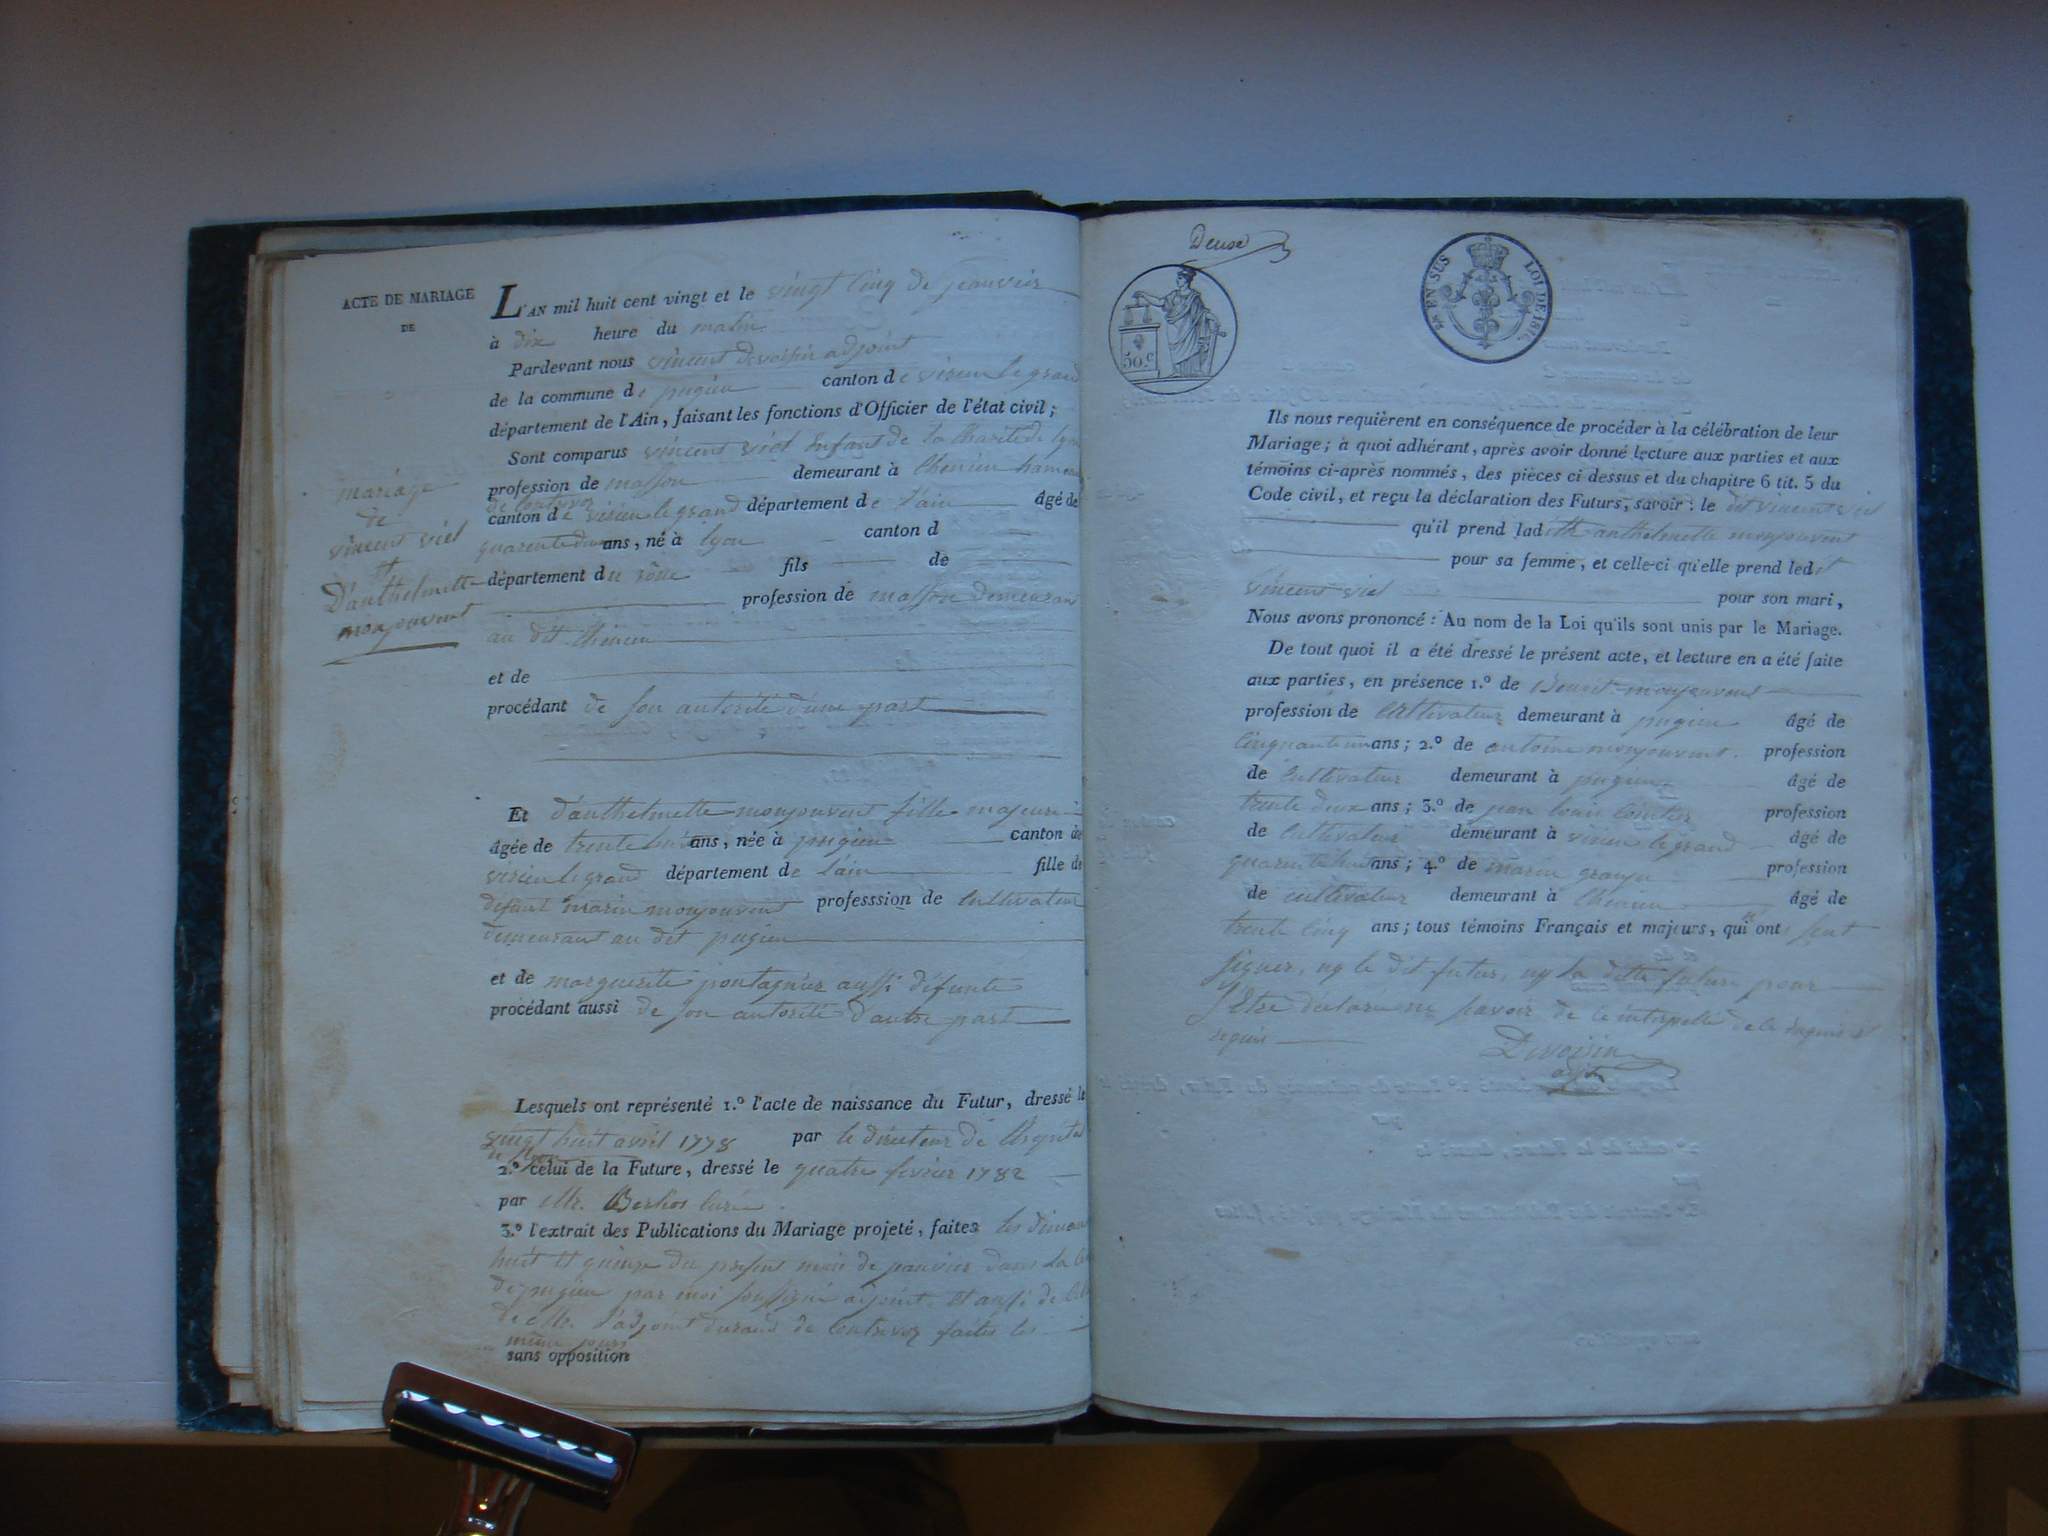 ACTE DE MARIAGE
DE
mariage
de
vincent viel
et
D'anthelmette
monjouvent
L'AN mil huit cent vingt et le vingt cinq de janvier
à dix heure du matin
Pardevant nous vincent devoisin adjoint
de la commune de pugieu canton de virieu le grand
département de l'Ain, faisant les fonctions d'Officier de l'état civil;
Sont comparus vincent viel enfant de la charité de lyon
profession de masson demeurant à Chenieu hameau
de Contrevoz
canton de virieu le grand département de l'ain âgé de
quarente deux ans, né à lyon canton d
département du rône fils de
profession de masson demeurant
au dit Chenieu
et de
procédant de son autorité d'une part
Et d'anthelmette monjouvent fille majeure
âgée de trente huit ans, née à pugieu canton de
virieu le grand département de l'ain fille de
défunt marin monjouvent professsion de Cultivateur
demeurant au dit pugieu
et de marguerite pontagnier aussi défunte
procédant aussi de son autorité d'autre part
Lesquels ont représenté 1.º l'acte de naissance du Futur, dressé le
vingt huit avril 1778 par le directeur de l'hopital
de lyon
2.º celui de la Future, dressé le quatre fevrier 1782
par Mr. Berlios curé
3.º l'extrait des Publications du Mariage projeté, faites les diman
huit et quinze du present mois de janvier dans la
de pugieu par moi soussigné adjoint et aussi de
de Mr. l'adjoint durand de Contrevoz faites les
même jours
sans opposition
50.C
EN SUS LOI DE 1816
Ils nous requièrent en conséquence de procéder à la célébration de leur
Mariage; à quoi adhérant, après avoir donné lecture aux parties et aux
témoins ci-après nommés, des pièces ci dessus et du chapitre 6 tit. 5 du
Code civil, et reçu la déclaration des Futurs, savoir: le dit vincent viel
qu'il prend ladite anthelmette monjouvent
pour sa femme, et celle-ci qu'elle prend ledit
vincent viel pour son mari,
Nous avons prononcé: Au nom de la Loi qu'ils sont unis par le Mariage.
De tout quoi il a été dressé le présent acte, et lecture en a été faite
aux parties, en présence 1.º de Benoit monjouvent
profession de Cultivateur demeurant à pugieu âgé de
cinquante un ans; 2.º de antoine monjouvent profession
de Cultivateur demeurant à pugieu âgé de
trente deux ans; 3.º de jean louis profession
de Cultivateur demeurant à virieu le grand âgé de
quarente huit ans; 4.º de marin profession
de cultivateur demeurant à Chenieu âgé de
trente cinq ans; tous témoins Français et majeurs, qui n'ont seut
signer, ny le dit futur, ny la ditte future pour
l'Etre déclaré ne savoir de ce interpellé de ce
requis
Devoisin
adjt